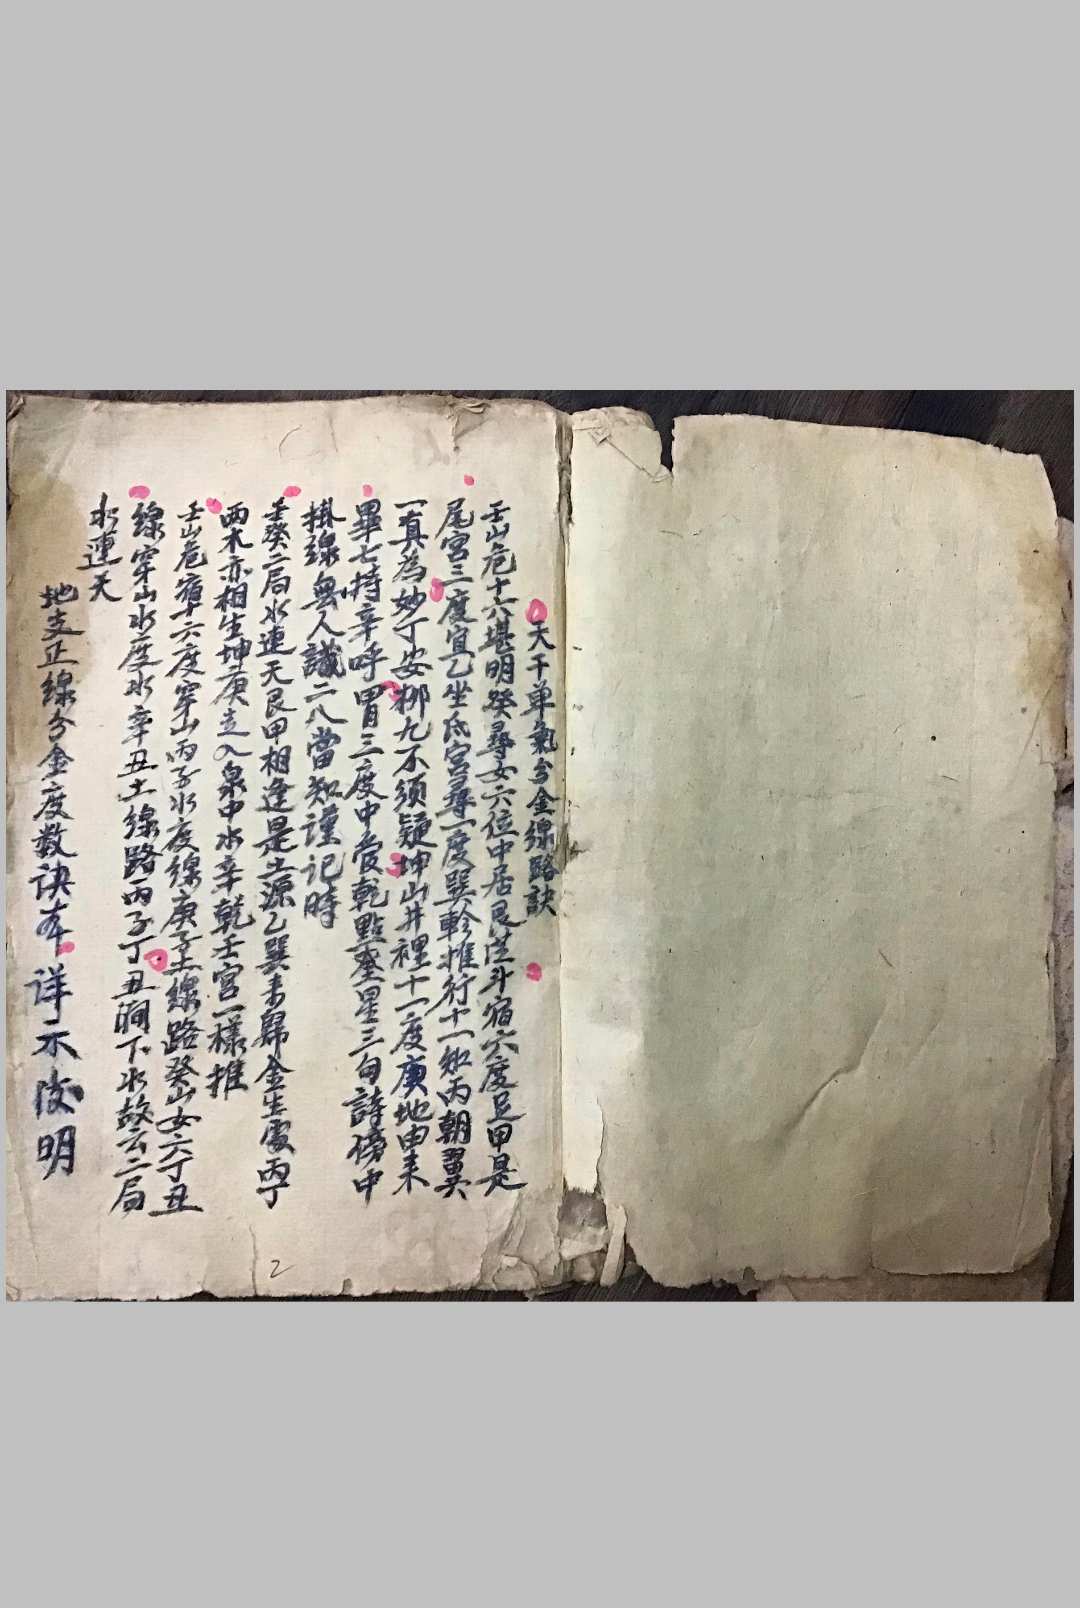 天干單氣分金線路訣
壬山危十六堪明癸尋女六位中居艮从斗宿六度足甲是
尾宮三度宜乙坐氐宮尋一度巽軫推行十一知丙朝翼
一真為妙丁安柳九不須疑坤山井裡十一度庚地由来
畢七持辛呼胃三度中愛乾點奎星三旬詩傍中
掛線無人識二八當知謹记時
壬癸二局水連天艮甲相逢是土源乙巽来歸金生處丙丁
两木亦相生坤庚走入泉中水辛乾壬宮一樣推
壬山危宿十六度穿山丙子水度線庚子土線路癸山女六丁丑
線穿山水度水辛丑土線路丙子丁丑澗下水故云二局
水連天
地支正線分金度数訣 詳示後明
2